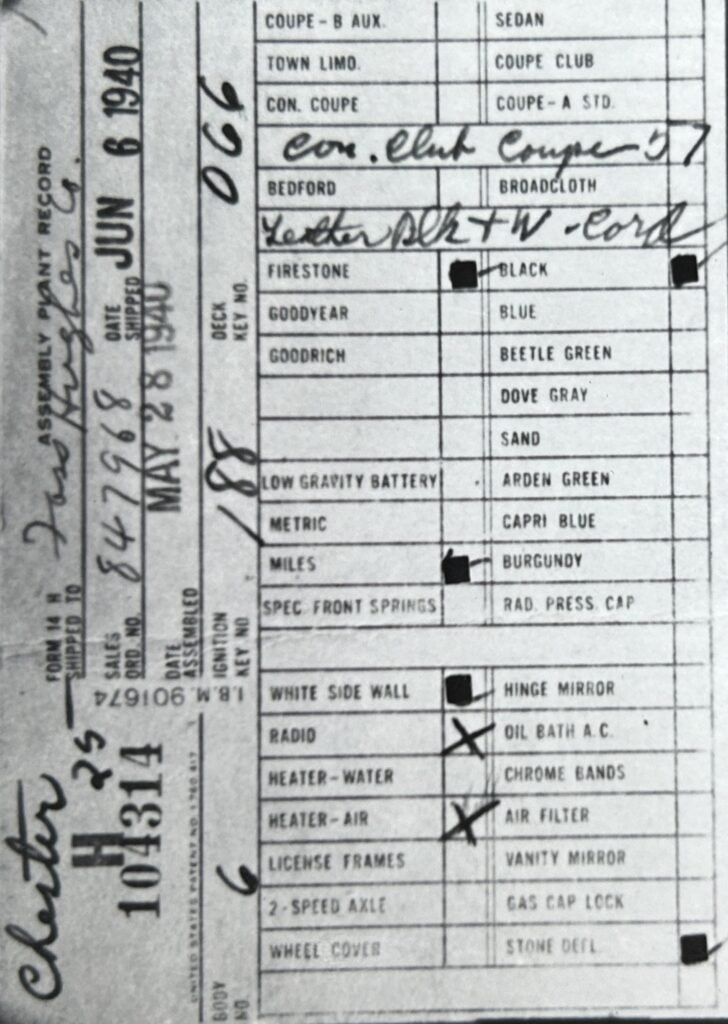 COUPE-B AUX. SEDAN
TOWN LIMO. COUPE CLUB
CON. COUPE COUPE-A STD.
Con. Club Coupe 57
BEDFORD BROADCLOTH
Leather Blk + W - Cord
FIRESTONE BLACK
GOODYEAR BLUE
GOODRICH BEETLE GREEN
DOVE GRAY
SAND
LOW GRAVITY BATTERY ARDEN GREEN
METRIC CAPRI BLUE
MILES BURGUNDY
SPEC. FRONT SPRINGS RAD. PRESS. CAP
WHITE SIDE WALL HINGE MIRROR
RADIO X OIL BATH A.C.
HEATER-WATER CHROME BANDS
HEATER-AIR X AIR FILTER
LICENSE FRAMES VANITY MIRROR
2-SPEED AXLE GAS CAP LOCK
WHEEL COVER STONE DEFL.
FORM 14 H ASSEMBLY PLANT RECORD
SHIPPED TO Hughes Co.
SALES ORD. NO. 847968 DATE SHIPPED JUN 6 1940
DATE ASSEMBLED MAY 28 1940
IGNITION KEY NO. 188 DECK KEY NO. 066
I.B.M. 901674
Chester
H 25
104314
UNITED STATES PATENT NO. 1,780,417
BODY NO. 6